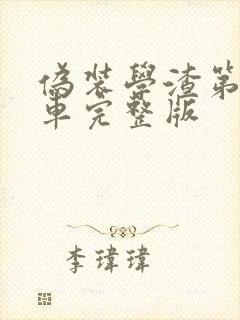 偽装學渣第
車完整版
李瑋瑋